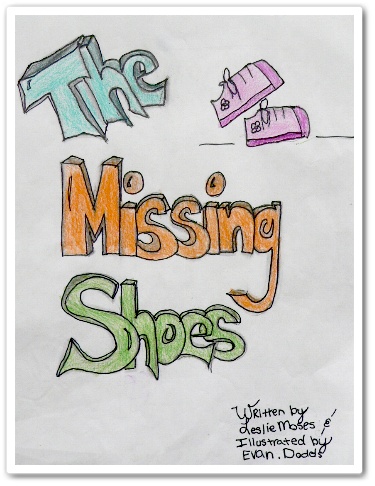 The
Missing
Shoes
Written by
Leslie Moses &
Illustrated by
Evan. Dodds